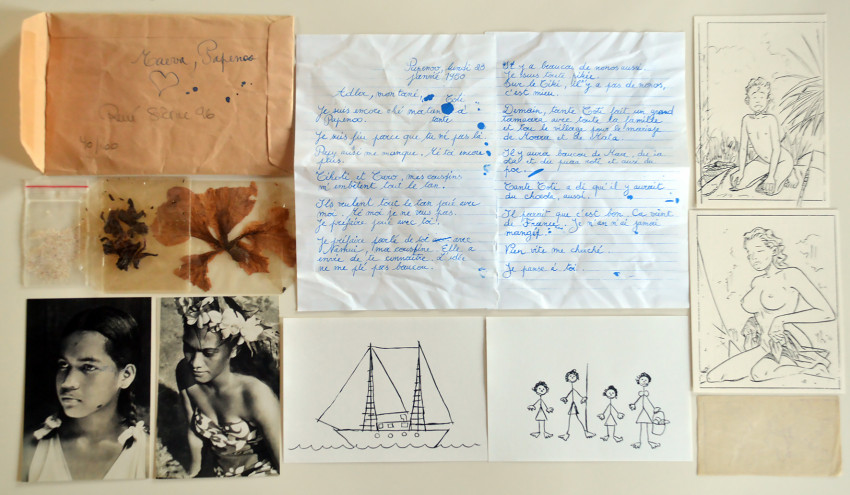 Maeva, Papenoo
96
Papenoo, lundi 23
janvié 1950
mon tané,
Toti.
Je suis encore ché ma tante à
Papenoo.
Je suis fiu parce que tu né pas là.
Papy aussi me manque. Mé toi encore
plus.
et Tero, mes cousins
m'embêtent tout le tan.
Ils veulent tout le tan joué avec
moi. Mé moi je ne veus pas.
Je préfère joué avec toi.
Je préfère parlé de toi avec
ma cousine. Elle a
envie de te connaître.
ne me plé pas baucou.
Il y a baucou de nonos aussi.
Je suis toute pikée.
Sur le Tiki, il y a pas de nonos,
c'est mieu.
Demain, tante Toti fait un grand
tamaara avec toute la famille
et tout le village pour le mariage
de et de
Il y aura baucou de
et du
Tante Toti a di qu'il y aurait
du chocola, aussi.
Il parait que c'est bon. Ca vient
de France. Je n'en n'ai jamai
mangé.
Vien vite me chaché.
Je panse à toi.